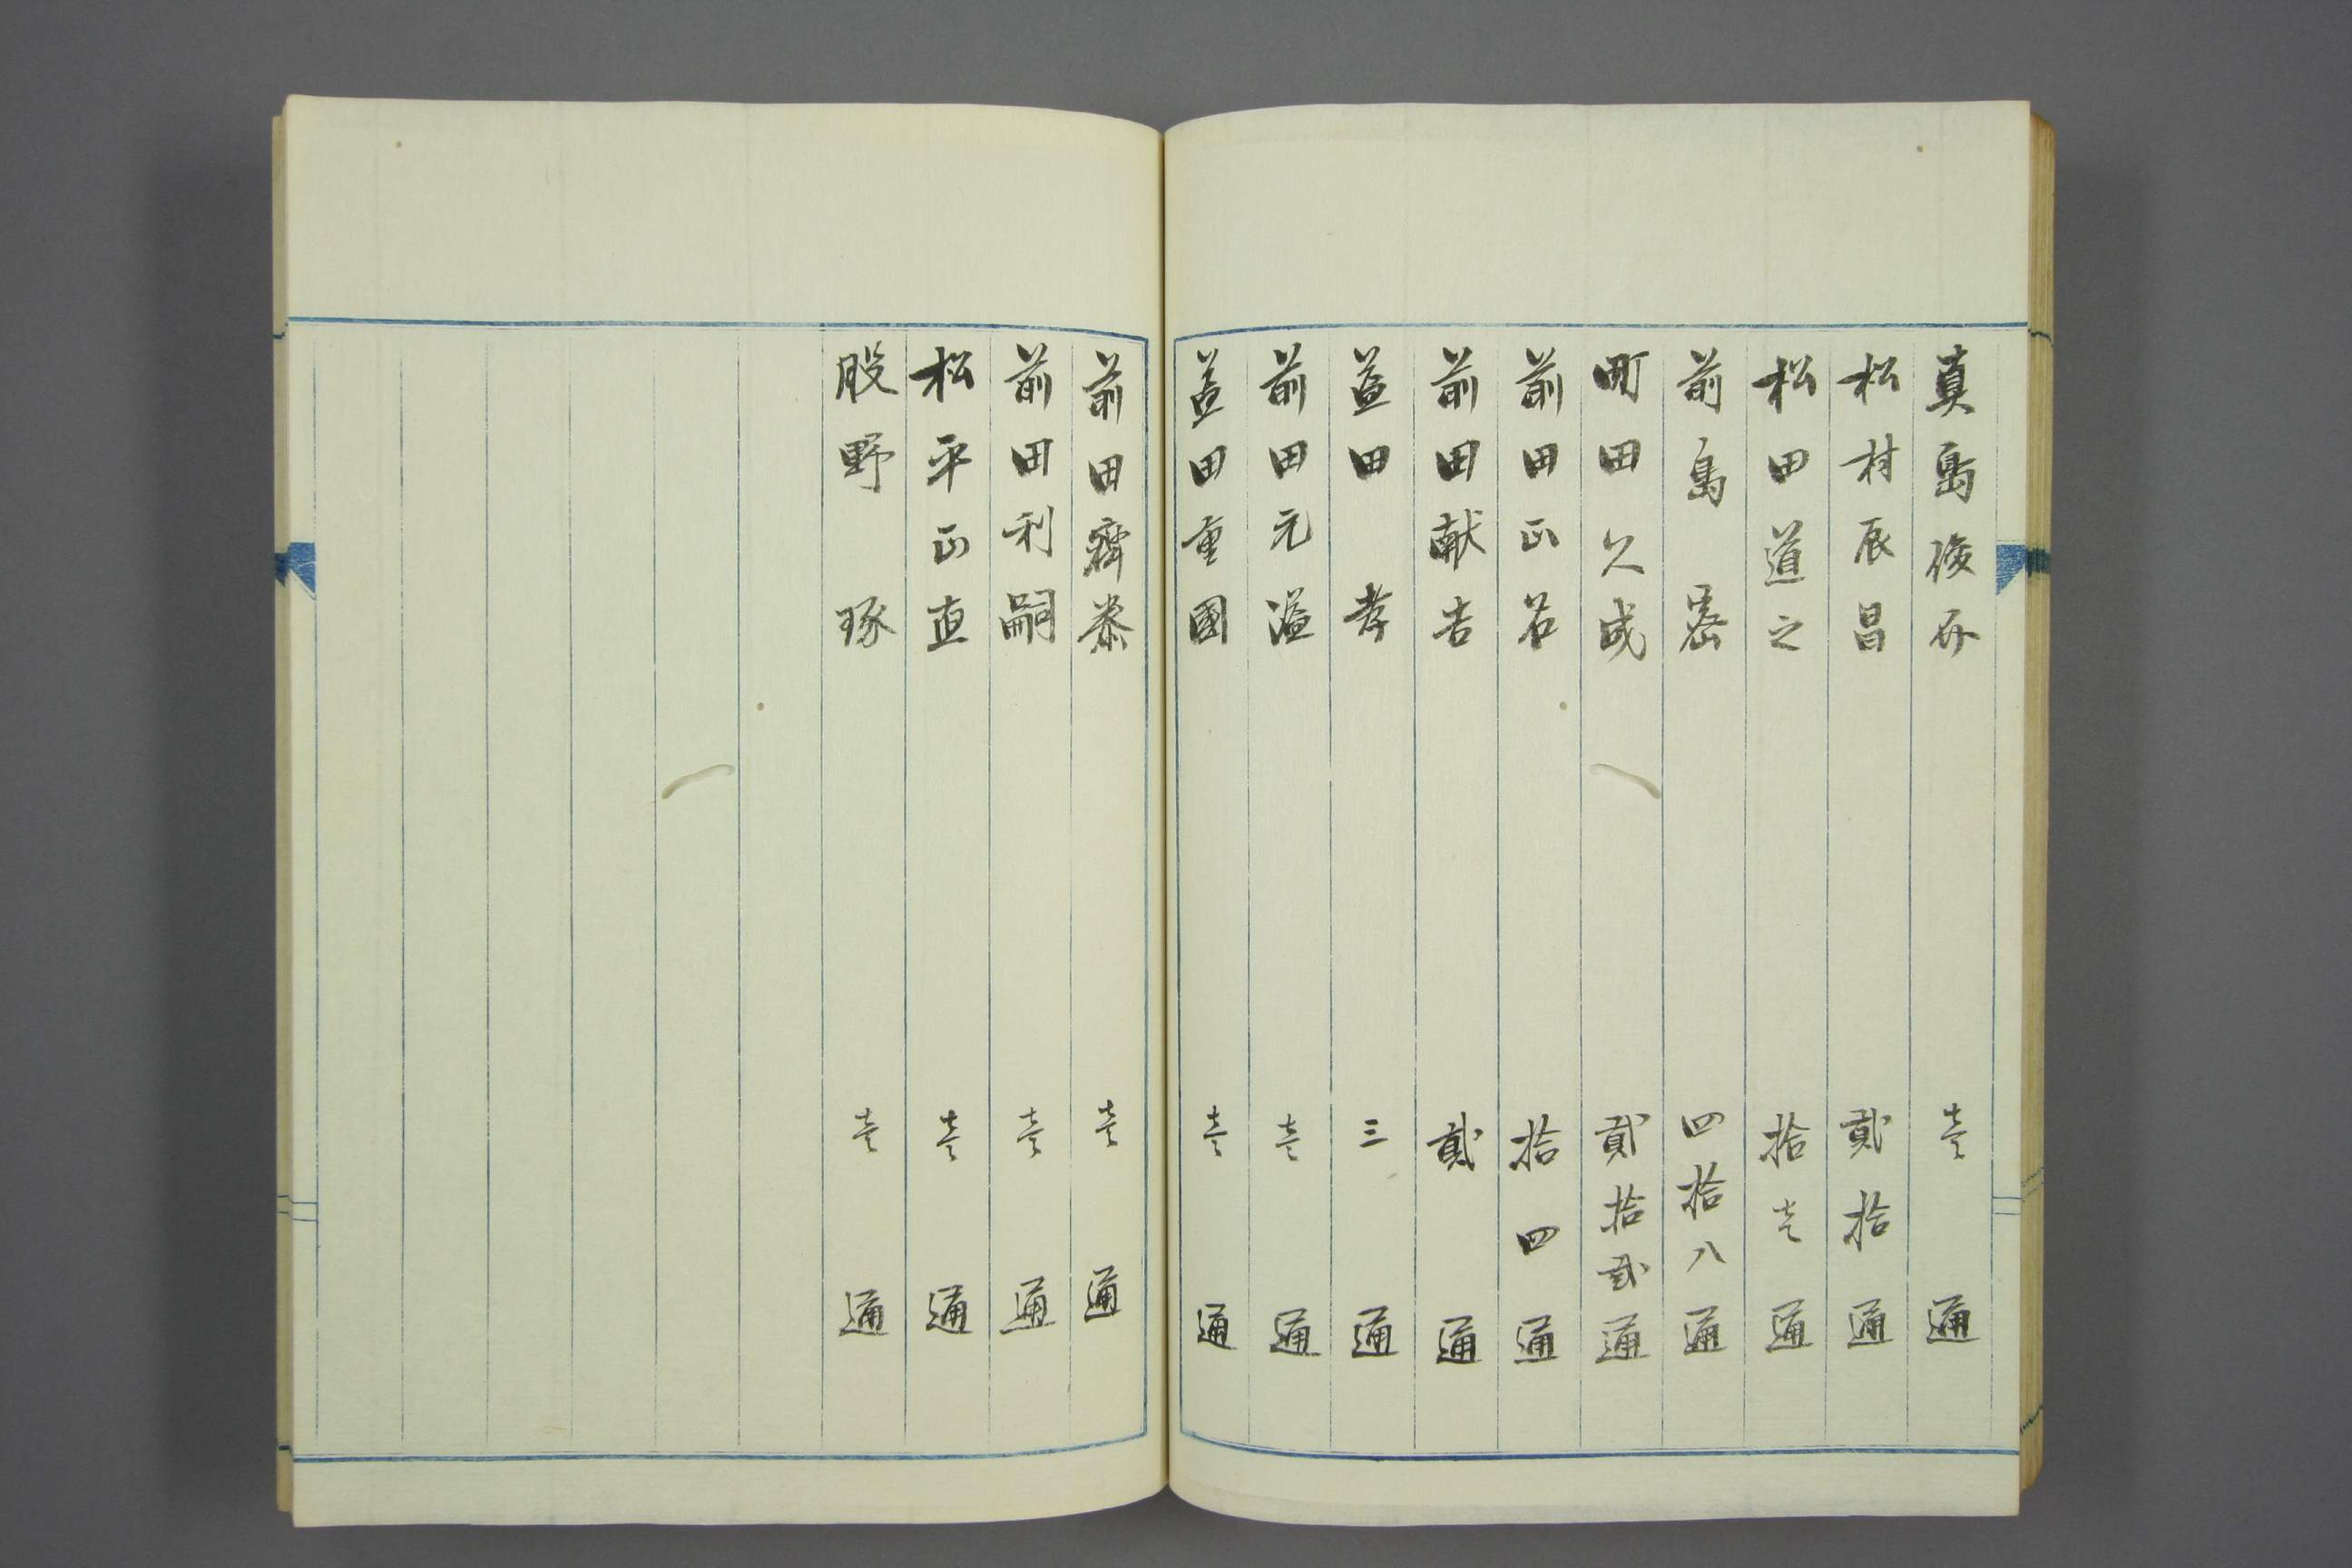 真島俊介 壱通
松村辰昌 貳拾通
松田道之 拾壱通
前島密 四拾八通
町田久成 貳拾貳通
前田正名 拾四通
前田献吉 貳通
益田孝 三通
前田元温 壱通
益田重國 壱通
前田齊泰 壱通
前田利嗣 壱通
松平正直 壱通
股野琢 壱通